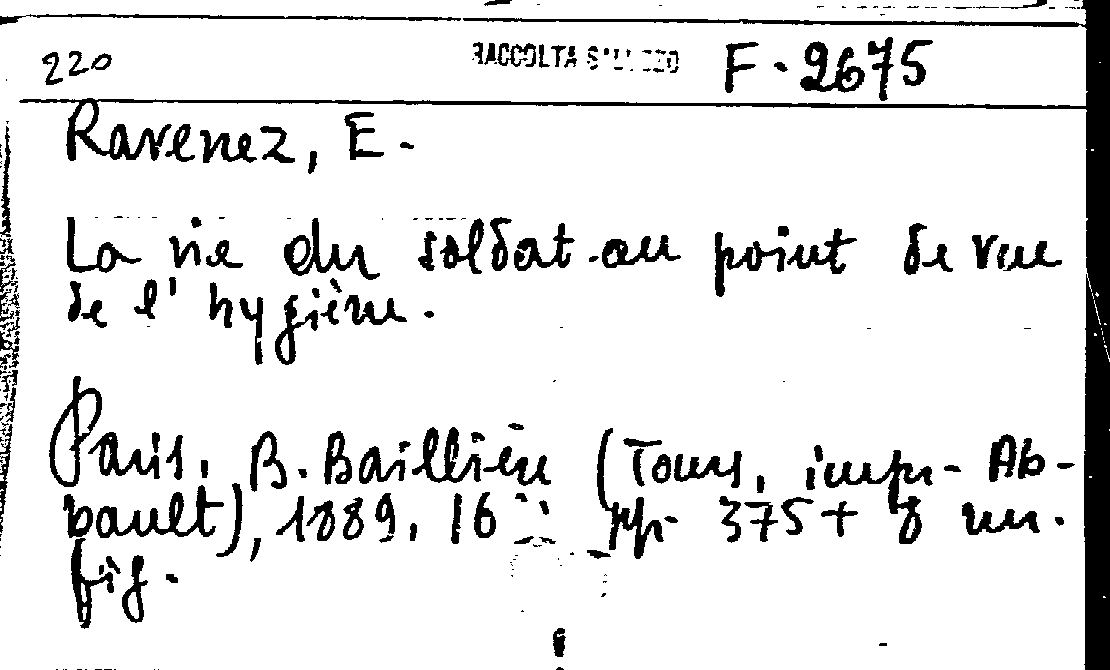 220 RACCOLTA F. 2675
Ravenez, E.
La vie du soldat au point de vue
de l'hygiène.
Paris, B. Baillière (Tours, impr. Ab-
bault), 1889, 16° pp. 375 + 8 nn.
fig.